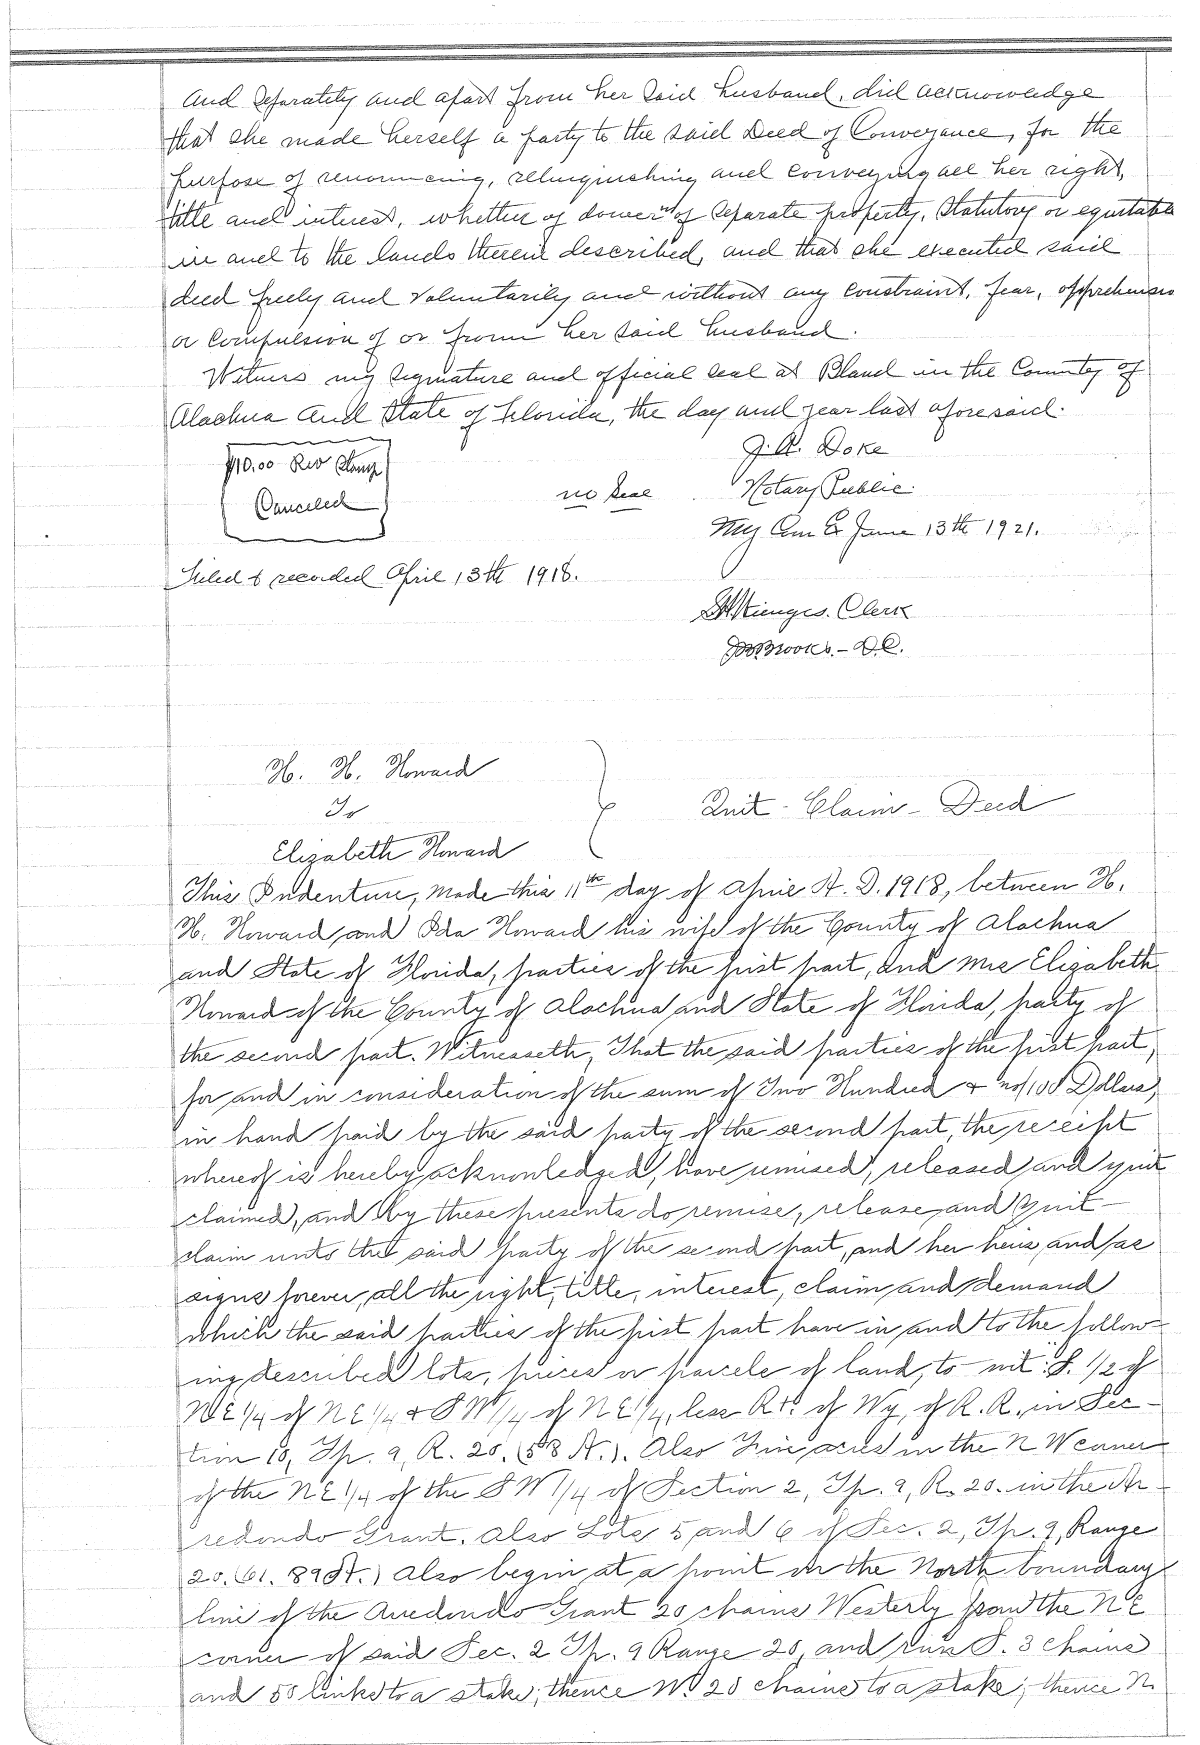 and separately and apart from her said husband, did acknowledge
that she made herself a party to the said Deed of Conveyance, for the
purpose of renouncing, relinquishing and conveying all her right,
title and interest, whether of dower or of separate property, statutory or equitable
in and to the lands therein described, and that she executed said
deed freely and voluntarily and without any constraint, fear, apprehensio
or compulsion of or from her said husband.
Witness my signature and official seal at Bland in the County of
Alachua and State of Florida, the day and year last aforesaid.
J. A. Doke
$10.00 Rev Stamp
Canceled
no Seal Notary Public.
My Com Ex June 13th 1921.
Filed & recorded April 13th 1918.
Wienges. Clerk
Brooks. - D.C.
H. H. Howard
To
Quit - Claim - Deed
Elizabeth Howard
This Indenture, Made this 11th day of April A. D. 1918, between H.
H. Howard, and Ida Howard his wife of the County of Alachua
and State of Florida, parties of the first part, and Mrs Elizabeth
Howard of the County of Alachua and State of Florida, party of
the second part. Witnesseth, That the said parties of the first part,
for and in consideration of the sum of Two Hundred & no/100 Dollars,
in hand paid by the said party of the second part, the receipt
whereof is hereby acknowledged, have remised, released and quit
claimed, and by these presents do remise, release and quit-
claim unto the said party of the second part, and her heirs and as
signs forever, all the right, title, interest, claim and demand
which the said parties of the first part have in and to the follow-
ing described lots, pieces or parcels of land, to wit: S. 1/2 of
NE 1/4 of NE 1/4 & SW 1/4 of NE 1/4, less Rt. of Wy, of R. R. in Sec-
tion 10, Tp. 9, R. 20. (58 A.). Also Five acres in the N W corner
of the NE 1/4 of the SW 1/4 of Section 2, Tp. 9, R. 20. in the Ar-
redondo Grant. Also Lots 5 and 6 of Sec. 2, Tp. 9, Range
20. (61. 89 A.) Also begin at a point on the North boundary
line of the Arredondo Grant 20 chains Westerly from the N E
corner of said Sec. 2 Tp. 9 Range 20, and run S. 3 chains
and 50 links to a stake; thence W. 20 chains to a stake; thence N.